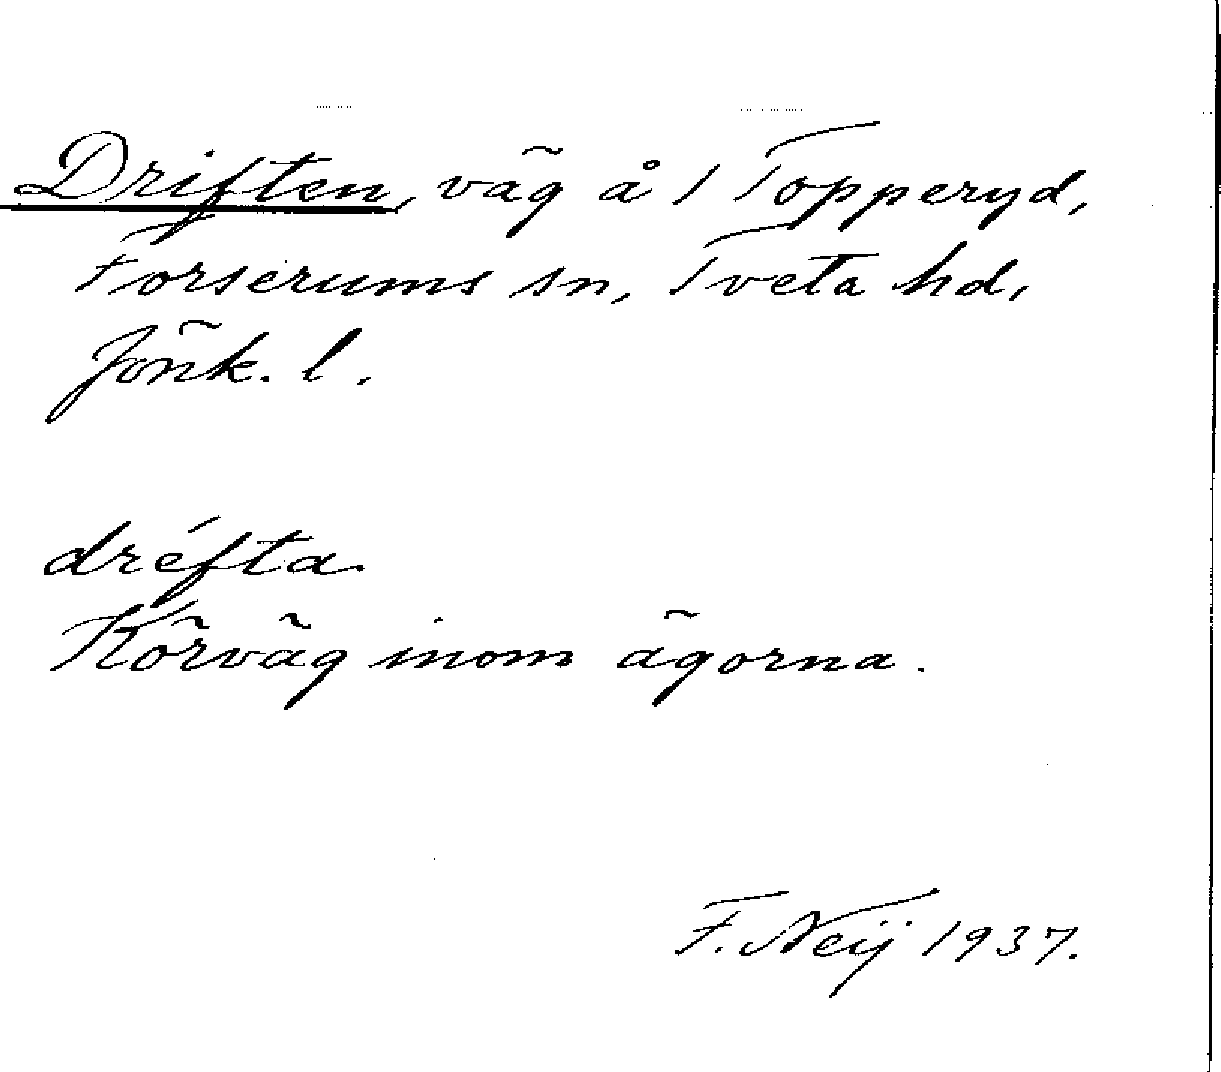 Driften, väg å 1 Topperyd,
Forserums sn, Tveta hd,
Jönk. l.
dréfta
Körväg inom ägorna.
F. Neij 1937.